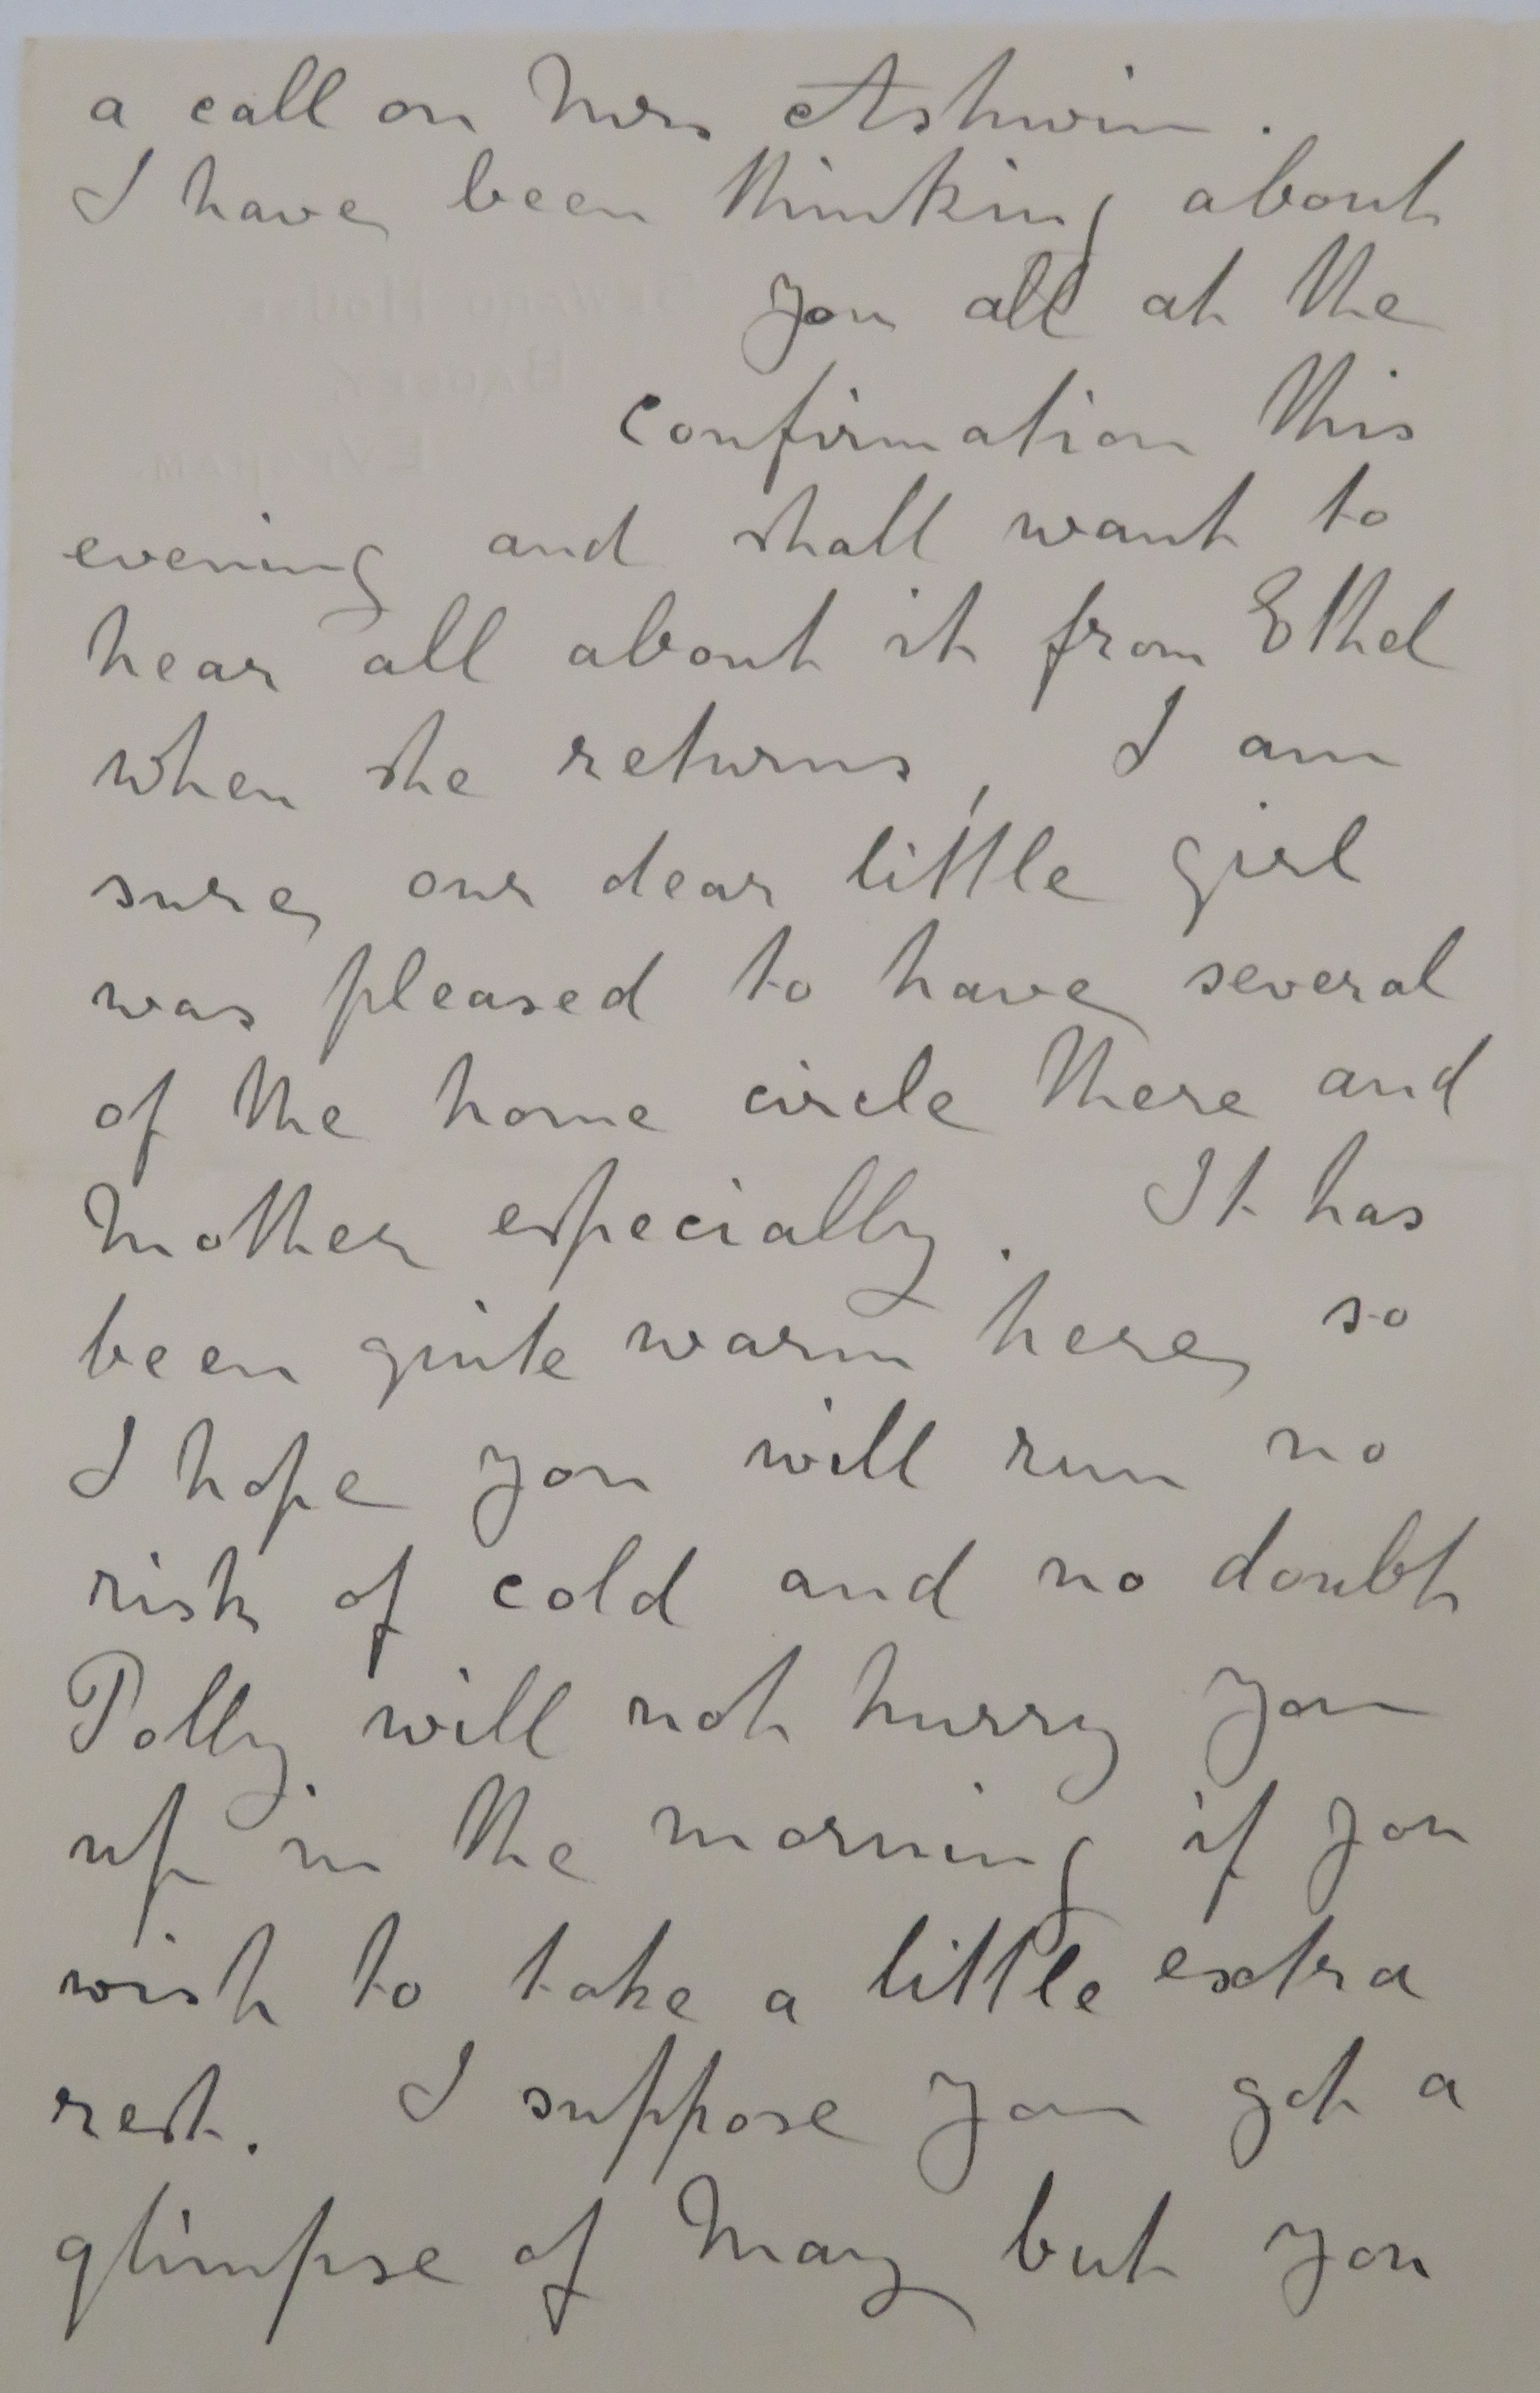 a call on Mrs Ashwin.
I have been thinking about
you all at the
confirmation this
evening and shall want to
hear all about it from Ethel
when she returns, I am
sure our dear little girl
was pleased to have several
of the home circle there and
Mother especially. It has
been quite warm here so
I hope you will run no
risk of cold and no doubt
Polly will not hurry you
up in the morning if you
wish to take a little extra
rest. I suppose you got a
glimpse of May but you